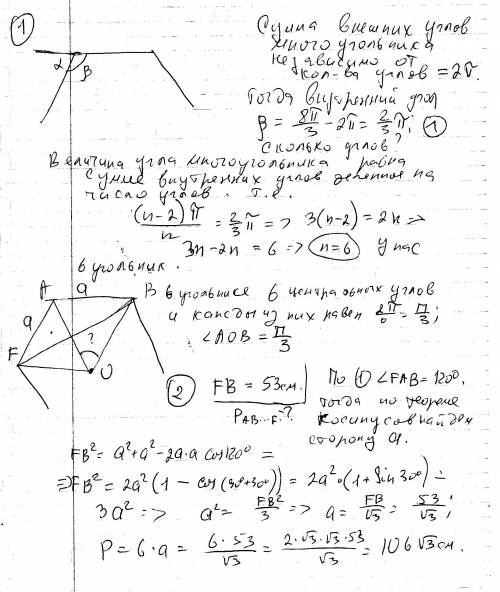 1
Сумма внешних углов
многоугольника
независимо от
кол-ва углов = 2π.
α β
Тогда внутренний угол
β = 8π/3 - 2π = 2/3 π; 1
Сколько углов?
Величина угла многоугольника равна
сумме внутренних углов деленное на
число углов. т.е.
(n-2)π/n = 2/3 π => 3(n-2) = 2n =>
3n-2n = 6 => n=6 У нас
6 угольник.
A a B
a F ? O
В 6 угольнике 6 центральных углов
и каждый из них равен 2π/6 = π/3;
∠AOB = π/3
2 FB = 53 см.
P AB...F - ?
По 1 ∠FAB = 120°,
тогда по теореме
косинусов найдем
сторону a.
FB² = a² + a² - 2a·a cos120° =
=> FB² = 2a²(1 - cos(90°+30°)) = 2a²·(1 + Sin 30°) =
3a² => a² = FB²/3 => a = FB/√3 = 53/√3;
P = 6·a = 6·53/√3 = 2·√3·√3·53/√3 = 106√3 см.